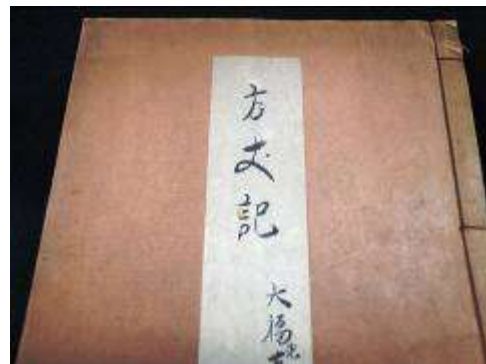 方丈記
大福光